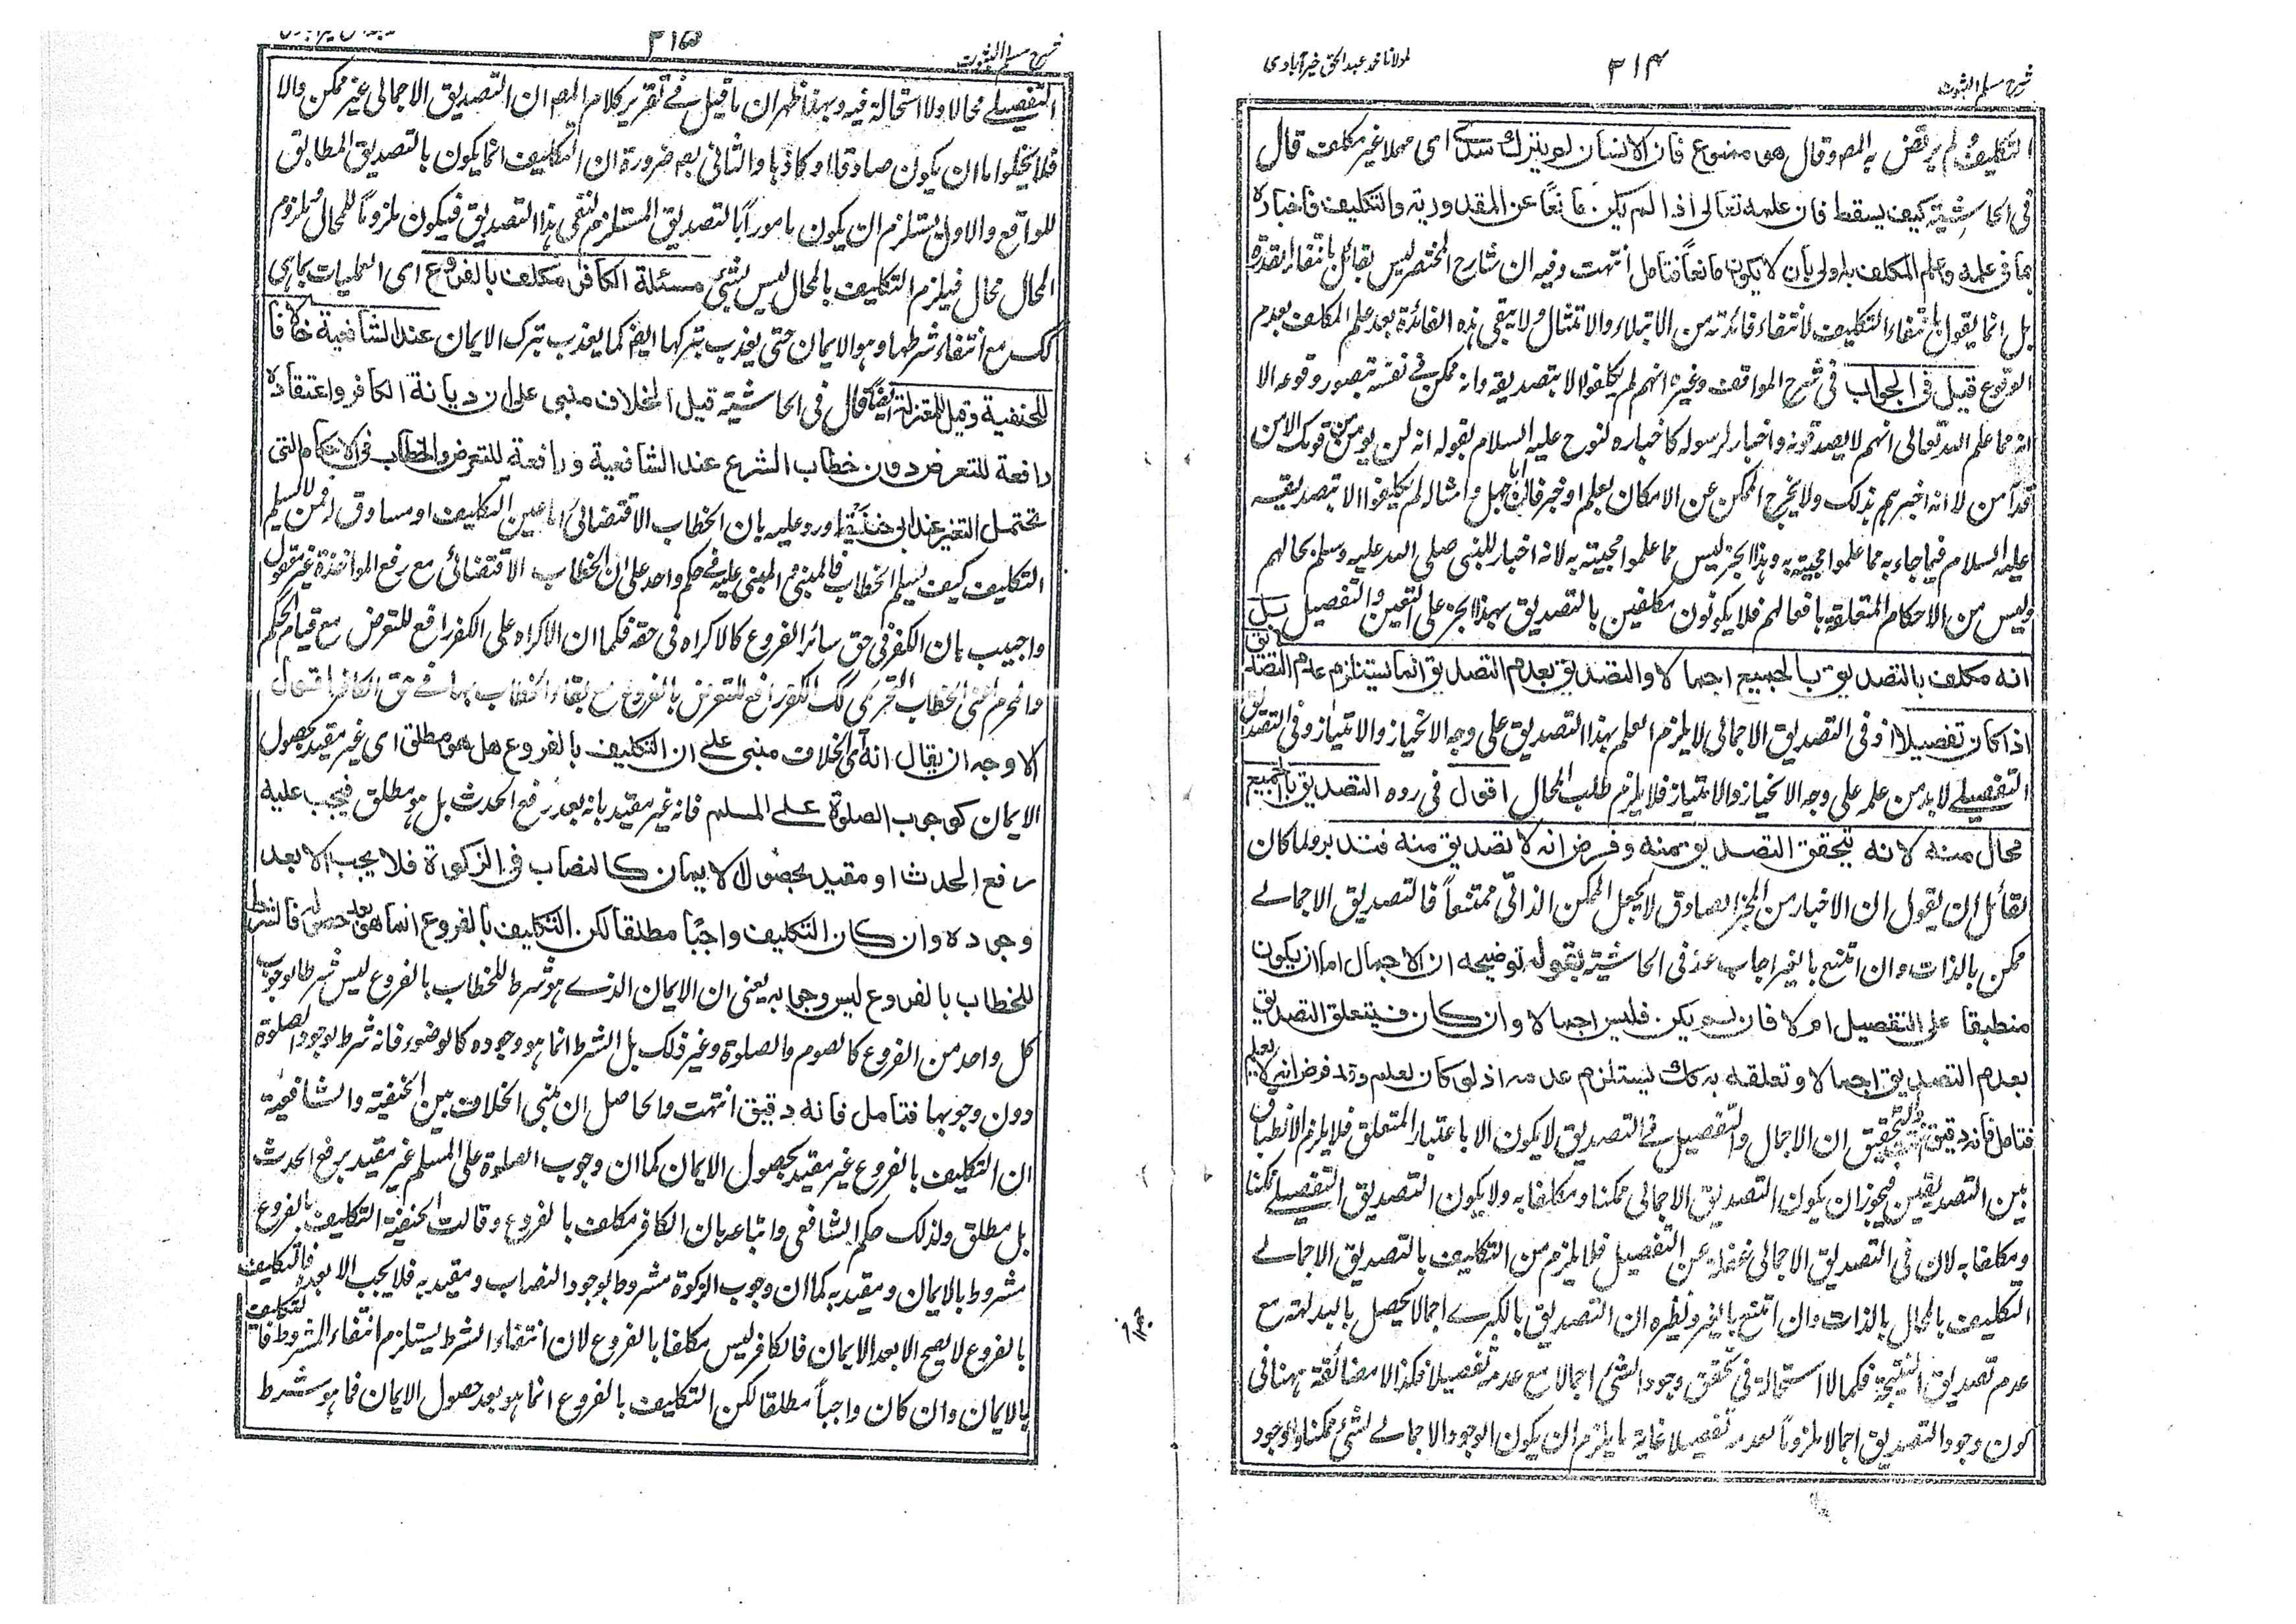 شرح مسلم الثبوت
٣١٤
مولانا محمد عبد الحق خيرآبادى
التكليف لم يرتض به المصـ وقال هو ممنوع فان الانسان لم يترك سدى اى مهملا غير مكلف قال
فى الحاشية كيف يسقط فان علمه تعالى اذا لم يكن مانعًا عن المقدورية والتكليف فاخباره
بما فى علمه وعلم المكلف به اولى بأن لا يكون مانعاً فتامل انتهت وفيه ان شارح المختصر ليس بقائل بانتفاء القدرة
بل انما يقول بانتفاء التكليف لانتفاء فائدته من الابتلاء والامتثال ولا يتبقى هذه الفائدة بعد علم المكلف بعدم
الوقوع قيل فى الجواب فى شرح المواقف وغيره انهم لم يكلفوا الا بتصديقه وانه ممكن فى نفسه متصور وقوعه الا
انه مما علم الله تعالى انهم لا يصدقونه واخبار لرسوله كاخباره لنوح عليه السلام بقوله انه لن يؤمن من قومك الا من
قد آمن لا انه اخبرهم بذلك ولا يخرج الممكن عن الامكان بعلم او خبر فان ابا جهل وامثاله لم يكلفوا الا بتصديقه
عليه السلام فيما جاء به مما علموا مجيئه به وهذا الخبر ليس مما علموا مجيئه به لانه اخبار للنبى صلى الله عليه وسلم بحالهم
وليس من الاحكام المتعلقة بافعالهم فلا يكونون مكلفين بالتصديق بهذا الخبر على التعين والتفصيل بل
انه مكلف بالتصديق بالجميع اجمالا والتصديق بعدم التصديق انما يستلزم عدم التصديق
اذا كان تفصيلا اذ فى التصديق الاجمالى لا يلزم العلم بهذا التصديق على وجه الانحياز والامتياز وفى التصديق
التفصيلے لا بد من علمه على وجه الانحياز والامتياز فلا يلزم طلب المحال اقول فى رده التصديق بالجميع
محال منه لانه يتحقق التصديق منه وفرض انه لا تصديق منه فتدبر ولما كان
لقائل ان يقول ان الاخبار من المخبر الصادق لا يجعل الممكن الذاتى ممتنعاً فالتصديق الاجمالے
ممكن بالذات وان امتنع بالغير اجاب عنه فى الحاشية بقوله توضيحه ان الاجمال اما ان يكون
منطبقا على التفصيل ام لا فان لم يكن فليس اجمالا وان كان فيتعلق التصديق
بعدم التصديق اجمالا وتعلقه به كك يستلزم عدمه اذ لو كان لعلم وقد فرض انه لا يعلم
فتامل فانه دقيق والتحقيق ان الاجمال والتفصيل فى التصديق لا يكون الا باعتبار المتعلق فلا يلزم الانطباق
بين التصديقين فيجوز ان يكون التصديق الاجمالى ممكنا ومكلفا به ولا يكون التصديق التفصيلے ممكنا
ومكلفا به لان فى التصديق الاجمالى غفلة عن التفصيل فلا يلزم من التكليف بالتصديق الاجمالے
التكليف بالمحال بالذات وان امتنع بالغير ونظيره ان التصديق بالكبرے اجمالا يحصل بالبداهة مع
عدم تصديق النتيجة فكما لا استحالة فى تحقق وجود الشئ اجمالا مع عدمه تفصيلا فكذا لا مضائقة ههنا فى
كون وجود التصديق اجمالا ملزوماً لعدمه تفصيلا غاية ما يلزم ان يكون الوجود الاجمالے لشئ ممكنا والوجود
شرح مسلم الثبوت
٣١٥
التفصيلے محالا ولا استحالة فيه وبهذا ظهر ان ما قيل فے تقرير كلام المصـ ان التصديق الاجمالى غير ممكن والا
فلا يخلوا ما ان يكون صادقا او كاذبا والثانى بعم ضرورة ان التكليف انما يكون بالتصديق المطابق
للواقع والاول يستلزم ان يكون مامورا بالتصديق المستلزم لنفى هذا التصديق فيكون ملزوماً للمحال وملزوم
المحال محال فيلزم التكليف بالمحال ليس بشئ مسئلة الكافر مكلف بالفروع اى العمليات بما هى
كك مع انتفاء شرطها وهو الايمان حتى يعذب بتركها ايضـ كما يعذب بترك الايمان عند الشافعية خلافا
للحنفية وقيل للمعتزلة ايضًا قال فى الحاشية قيل الخلاف مبنى على ان ديانة الكافر واعتقاده
دافعة للتعرض دون خطاب الشرع عند الشافعية ودافعة للتعرض والخطاب فى الاحكام التى
تحتمل التغير عند ابى حنيفة اورد عليه بان الخطاب الاقتضائى اما عين التكليف او مساوق له فمن لا يسلم
التكليف كيف يسلم الخطاب فالمبنى والمبنى عليه فے حكم واحد على ان الخطاب الاقتضائى مع رفع المواخذة غير معقول
واجيب بان الكفر فى حق سائر الفروع كالاكراه فى حقه فكما ان الاكراه على الكفر رافع للتعرض مع قيام الحكم
والمحرم اعنى الخطاب التحريمى كك الكفر رافع للتعرض بالفروع مع بقاء الخطاب بها فے حق الكافر اقول
الاوجه ان يقال انه اى الخلاف مبنى على ان التكليف بالفروع هل هو مطلق اى غير مقيد بحصول
الايمان كوجوب الصلوة على المسلم فانه غير مقيد بانه بعد رفع الحدث بل هو مطلق فيجب عليه
رفع الحدث او مقيد بحصول الايمان كالنصاب فى الزكوة فلا يجب الا بعد
وجوده وان كان التكليف واجبًا مطلقا لكن التكليف بالفروع انما هو بعد حصوله فالشرط
للخطاب بالفروع ليس وجوبه يعنى ان الايمان الذے هو شرط للخطاب بالفروع ليس شرطا لوجوب
كل واحد من الفروع كالصوم والصلوة وغير ذلك بل الشرط انما هو وجوده كالوضوء فانه شرط لوجود الصلوة
دون وجوبها فتامل فانه دقيق انتهت والحاصل ان مبنى الخلاف بين الحنفية والشافعية
ان التكليف بالفروع غير مقيد بحصول الايمان كما ان وجوب الصلوة على المسلم غير مقيد برفع الحدث
بل مطلق ولذلك حكم الشافعى واتباعه بان الكافر مكلف بالفروع وقالت الحنفية التكليف بالفروع
مشروط بالايمان ومقيد به كما ان وجوب الزكوة مشروط بوجود النصاب ومقيد به فلا يجب الا بعده فالتكليف
بالفروع لا يصح الا بعد الايمان فالكافر ليس مكلفا بالفروع لان انتفاء الشرط يستلزم انتفاء المشروط فالتكليف
بالايمان وان كان واجباً مطلقا لكن التكليف بالفروع انما هو بعد حصول الايمان فما هو شرط